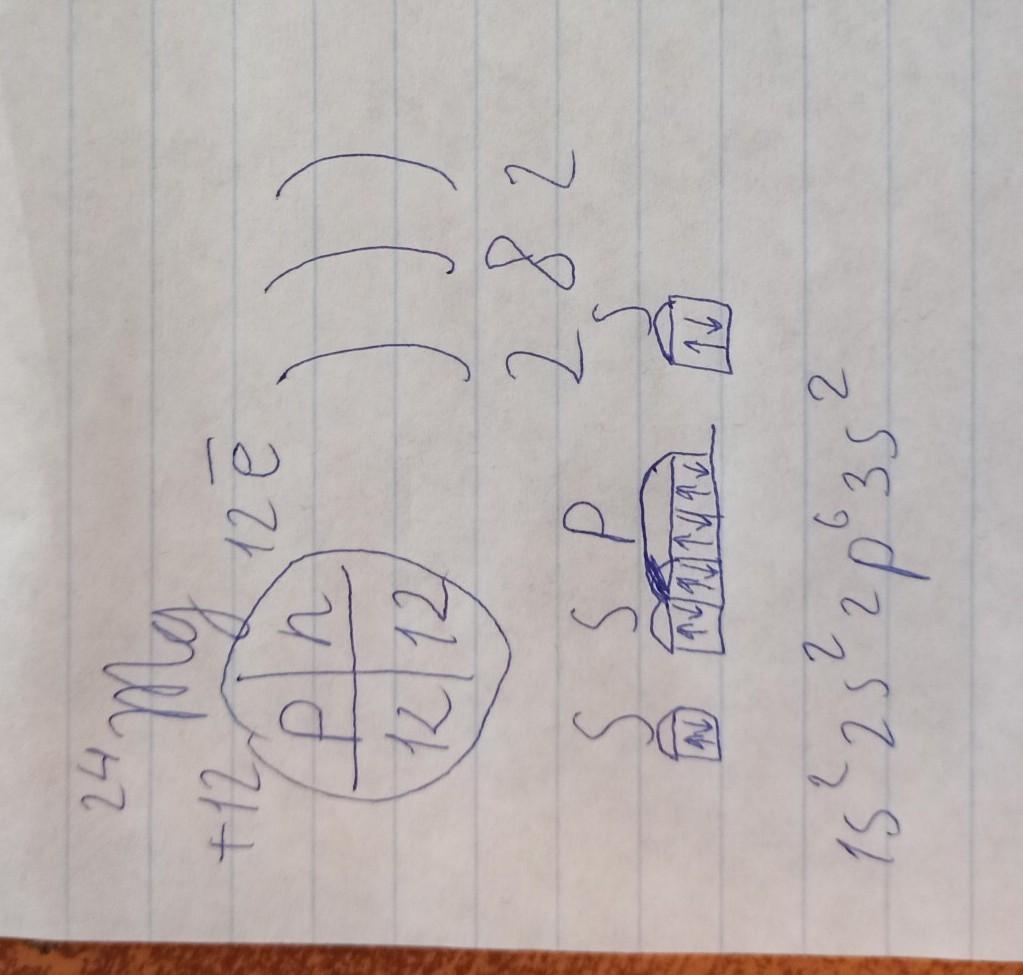 24 Mg
+12 12 ē
p n
12 12
2 8 2
S S P S
↑↓ ↑↓ ↑↓ ↑↓ ↑↓ ↑↓
1s² 2s² 2p⁶ 3s²